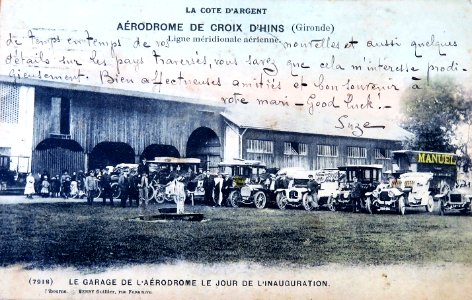 LA COTE D'ARGENT
AÉRODROME DE CROIX D'HINS (Gironde)
Ligne méridionale aérienne.
de temps en temps de vos nouvelles et aussi quelques
détails sur les pays traversés, vous savez que cela m'intéresse prodi-
gieusement. Bien affectueuses amitiés et bon souvenir à
votre mari - Good luck! -
Suze
MANUEL
(7918) LE GARAGE DE L'AÉRODROME LE JOUR DE L'INAUGURATION.
HENRY Guillier,